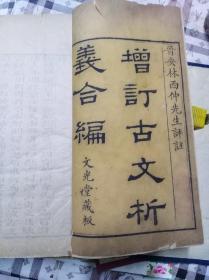 晉安林西仲先生評註
增訂古文析
義合編
文光堂藏板